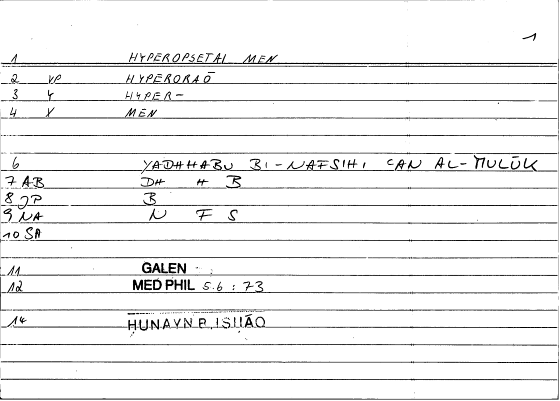 1
1 HYPEROPSETAI MEN
2 VP HYPERORAŌ
3 Y HYPER-
4 X MEN
6 YADHHABU BI-NAFSIHI CAN AL-MULŪK
7 AB DH H B
8 JP B
9 NA N F S
10 SA
11 GALEN
12 MED PHIL 5.6 : 73
14 HUNAYN B. ISHĀQ